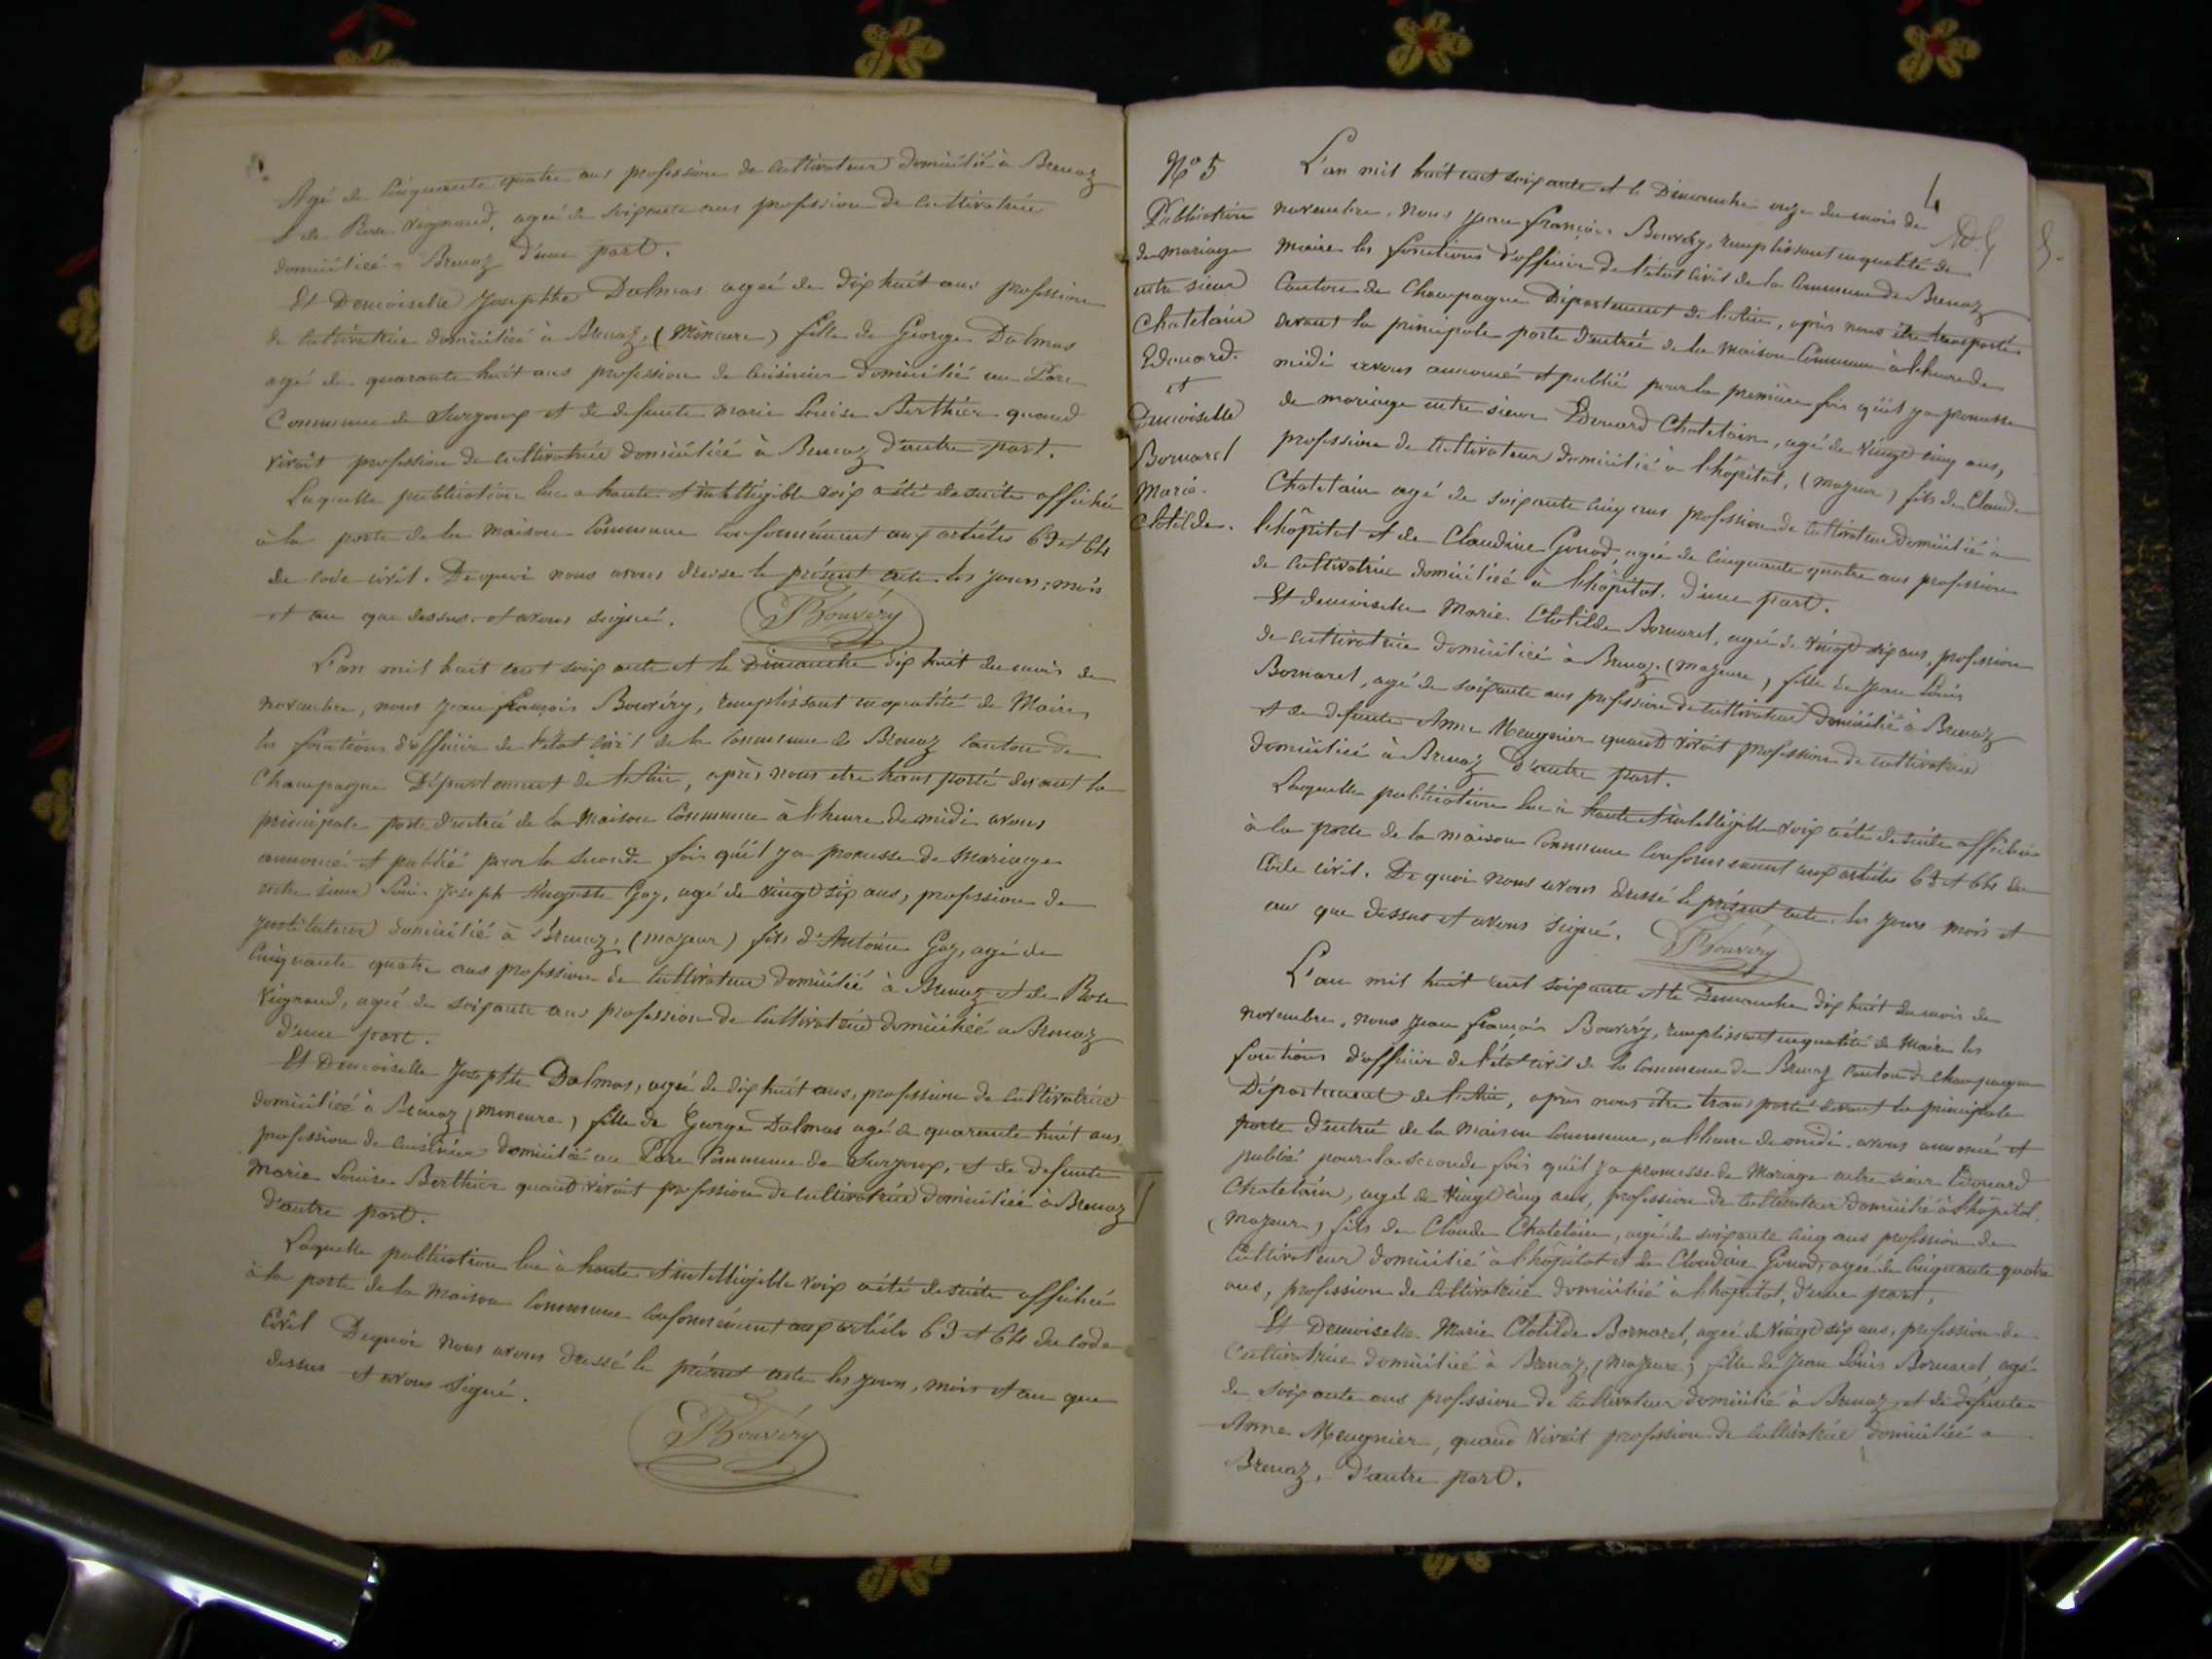 Agé de Cinquante quatre ans profession de Cultivateur domicilié à Brenaz
et de Rose Vignand, agée de soixante ans profession de Cultivatrice
domiciliée à Brenaz d'une part.
Et Demoiselle Josephte Dalmas agée de dix huit ans profession
de Cultivatrice domiciliée à Brenaz, (Mineure) fille de George Dalmas
agé de quarante huit ans profession de Cuisinier domicilié au Parc
Commune de Surjoux et de defunte Marie Louise Berthier quand
vivait profession de cultivatrice domiciliée à Brenaz d'autre part.
Laquelle publication lue a haute et intelligible voix a été de suite affichée
à la porte de la Maison Commune Conformément aux articles 63 et 64
de code civil. De quoi nous avons dressé le présent acte les jours, mois
et an que dessus et avons signé. JBouvéry
L'an mil huit cent soixante et le Dimanche dix huit du mois de
novembre, nous Jean François Bouvéry, remplissant en qualité de Maire
les fonctions d'officier de l'état civil de la Commune de Brenaz Canton de
Champagne Département de l'Ain, après nous etre transporté devant la
principale porte d'entrée de la Maison Commune à l'heure de midi avons
annoncé et publié pour la seconde fois qu'il y a promesse de Mariage
entre sieur Loui Joseph Auguste Goy, agé de vingt six ans, profession de
justituteur domicilié à Brenaz, (majeur) fils d'Antoine Goy, agé de
Cinquante quatre ans profession de Cultivateur domicilié à Brenaz et de Rose
Vignand, agée de soixante ans profession de Cultivatrice domiciliée a Brenaz
d'une part.
Et Demoiselle Josephte Dalmas, agée de dix huit ans, profession de Cultivatrice
domiciliée à Brenaz (mineure) fille de George Dalmas agé de quarante huit ans
profession de Cuisinier domicilié au Parc Commune de Surjoux, et de defunte
Marie Louise Berthier quand vivait profession de Cultivatrice domiciliée à Brenaz
d'autre part.
Laquelle publication lue à haute et intelligible voix a été de suite affichée
à la porte de la Maison Commune Conformément aux articles 63 et 64 du Code
Civil De quoi nous avons dressé le présent acte les jours, mois et an que
dessus et avons signé.
JBouvéry
Nº 5
Publication
de mariage
entre sieur
Chatelain
Edouard.
et
Demoiselle
Bornarel
Marie.
Clotilde.
4
5.
L'an mil huit cent soixante et le Dimanche onze du mois de
novembre, nous Jean François Bouvéry, remplissant en qualité de
Maire les fonctions d'officier de l'état civil de la Commune de Brenaz
Canton de Champagne Département de l'Ain, après nous être transporté
devant la principale porte d'entrée de la Maison Commune à l'heure de
midi avons annoncé et publié pour la première fois qu'il y a promesse
de mariage entre sieur Edouard Chatelain, agé de Vingt cinq ans,
profession de Cultivateur domicilié à l'hôpital, (majeur) fils de Claude
Chatelain agé de soixante cinq ans profession de Cultivateur domicilié à
l'hôpital et de Claudine Gonod, agée de Cinquante quatre ans profession
de Cultivatrice domiciliée à l'hôpital. d'une part.
Et demoiselle Marie Clotilde Bornarel, agée de Vingt six ans, profession
de cultivatrice domiciliée à Brenaz. (majeure) fille de Jean Louis
Bornarel, agé de soixante ans profession de cultivateur domicilié à Brenaz
et de defunte Anne Meugnier quand vivait profession de cultivatrice
domiciliée à Brenaz d'autre part.
Laquelle publication lue à haute et intelligible voix a été de suite affichée
à la porte de la maison Commune Conformément aux articles 63 et 64 du
Code civil. De quoi nous avons dressé le présent acte. les jours mois et
an que dessus et avons signé. JBouvéry
L'an mil huit cent soixante et le Dimanche dix huit du mois de
novembre, nous Jean François Bouvéry, remplissant en qualité de Maire les
fonctions d'officier de l'état civil de la Commune de Brenaz Canton de Champagne
Département de l'Ain, après nous être transporté devant la principale
porte d'entrée de la Maison Commune, a l'heure de midi avons annoncé et
publié pour la seconde fois qu'il y a promesse de Mariage entre sieur Edouard
Chatelain, agé de Vingt cinq ans, profession de Cultivateur domicilié à l'hôpital,
(majeur) fils de Claude Chatelain, agé de soixante cinq ans profession de
Cultivateur domicilié à l'hôpital et de Claudine Gonod, agée de Cinquante quatre
ans, profession de Cultivatrice domiciliée à l'hôpital, d'une part,
Et Demoiselle Marie Clotilde Bornarel, agée de Vingt six ans, profession de
Cultivatrice domiciliée à Brenaz, (majeure) fille de Jean Louis Bornarel, agé
de soixante ans profession de Cultivateur domicilié à Brenaz, et de defunte
Anne Meugnier, quand Vivait profession de Cultivatrice domiciliée a
Brenaz, d'autre part.